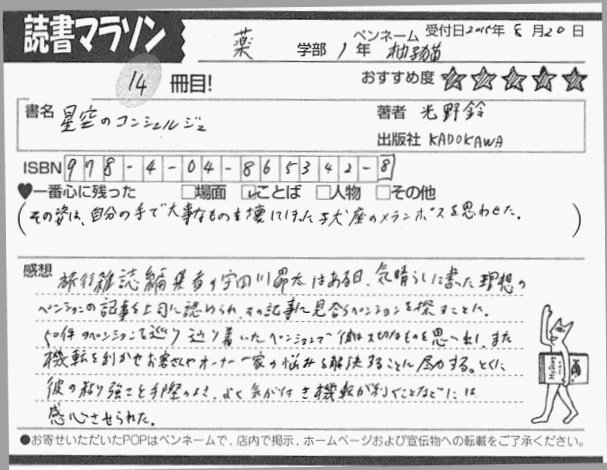 読書マラソン
薬 学部 1年 ペンネーム 柚子猫 受付日2015年 8月20日
14 冊目! おすすめ度 ☆☆☆☆☆
書名 星空のコンシェルジュ 著者 光野鈴
出版社 KADOKAWA
ISBN 978-4-04-865342-8
♥一番心に残った □場面 ☑ことば □人物 □その他
(その姿は、自分の手で大事なものを壊してしまった子犬座のメランポスを思わせた。)
感想 旅行雑誌編集者の宇田川昴太はある日、気晴らしに書いた理想の
ペンションの記事を上司に認められ、その記事に見合うペンションを探すことに。
50件のペンションを巡り辿り着いたペンションで彼は大切なものを思い出し、また
機転を利かせお客さんやオーナー一家の悩みを解決することに尽力する。とくに
彼の粘り強さと手際のよさ、よく気が付き機転が利くことなどには
感心させられた。
●お寄せいただいたPOPはペンネームで、店内で掲示、ホームページおよび宣伝物への転載をご了承ください。